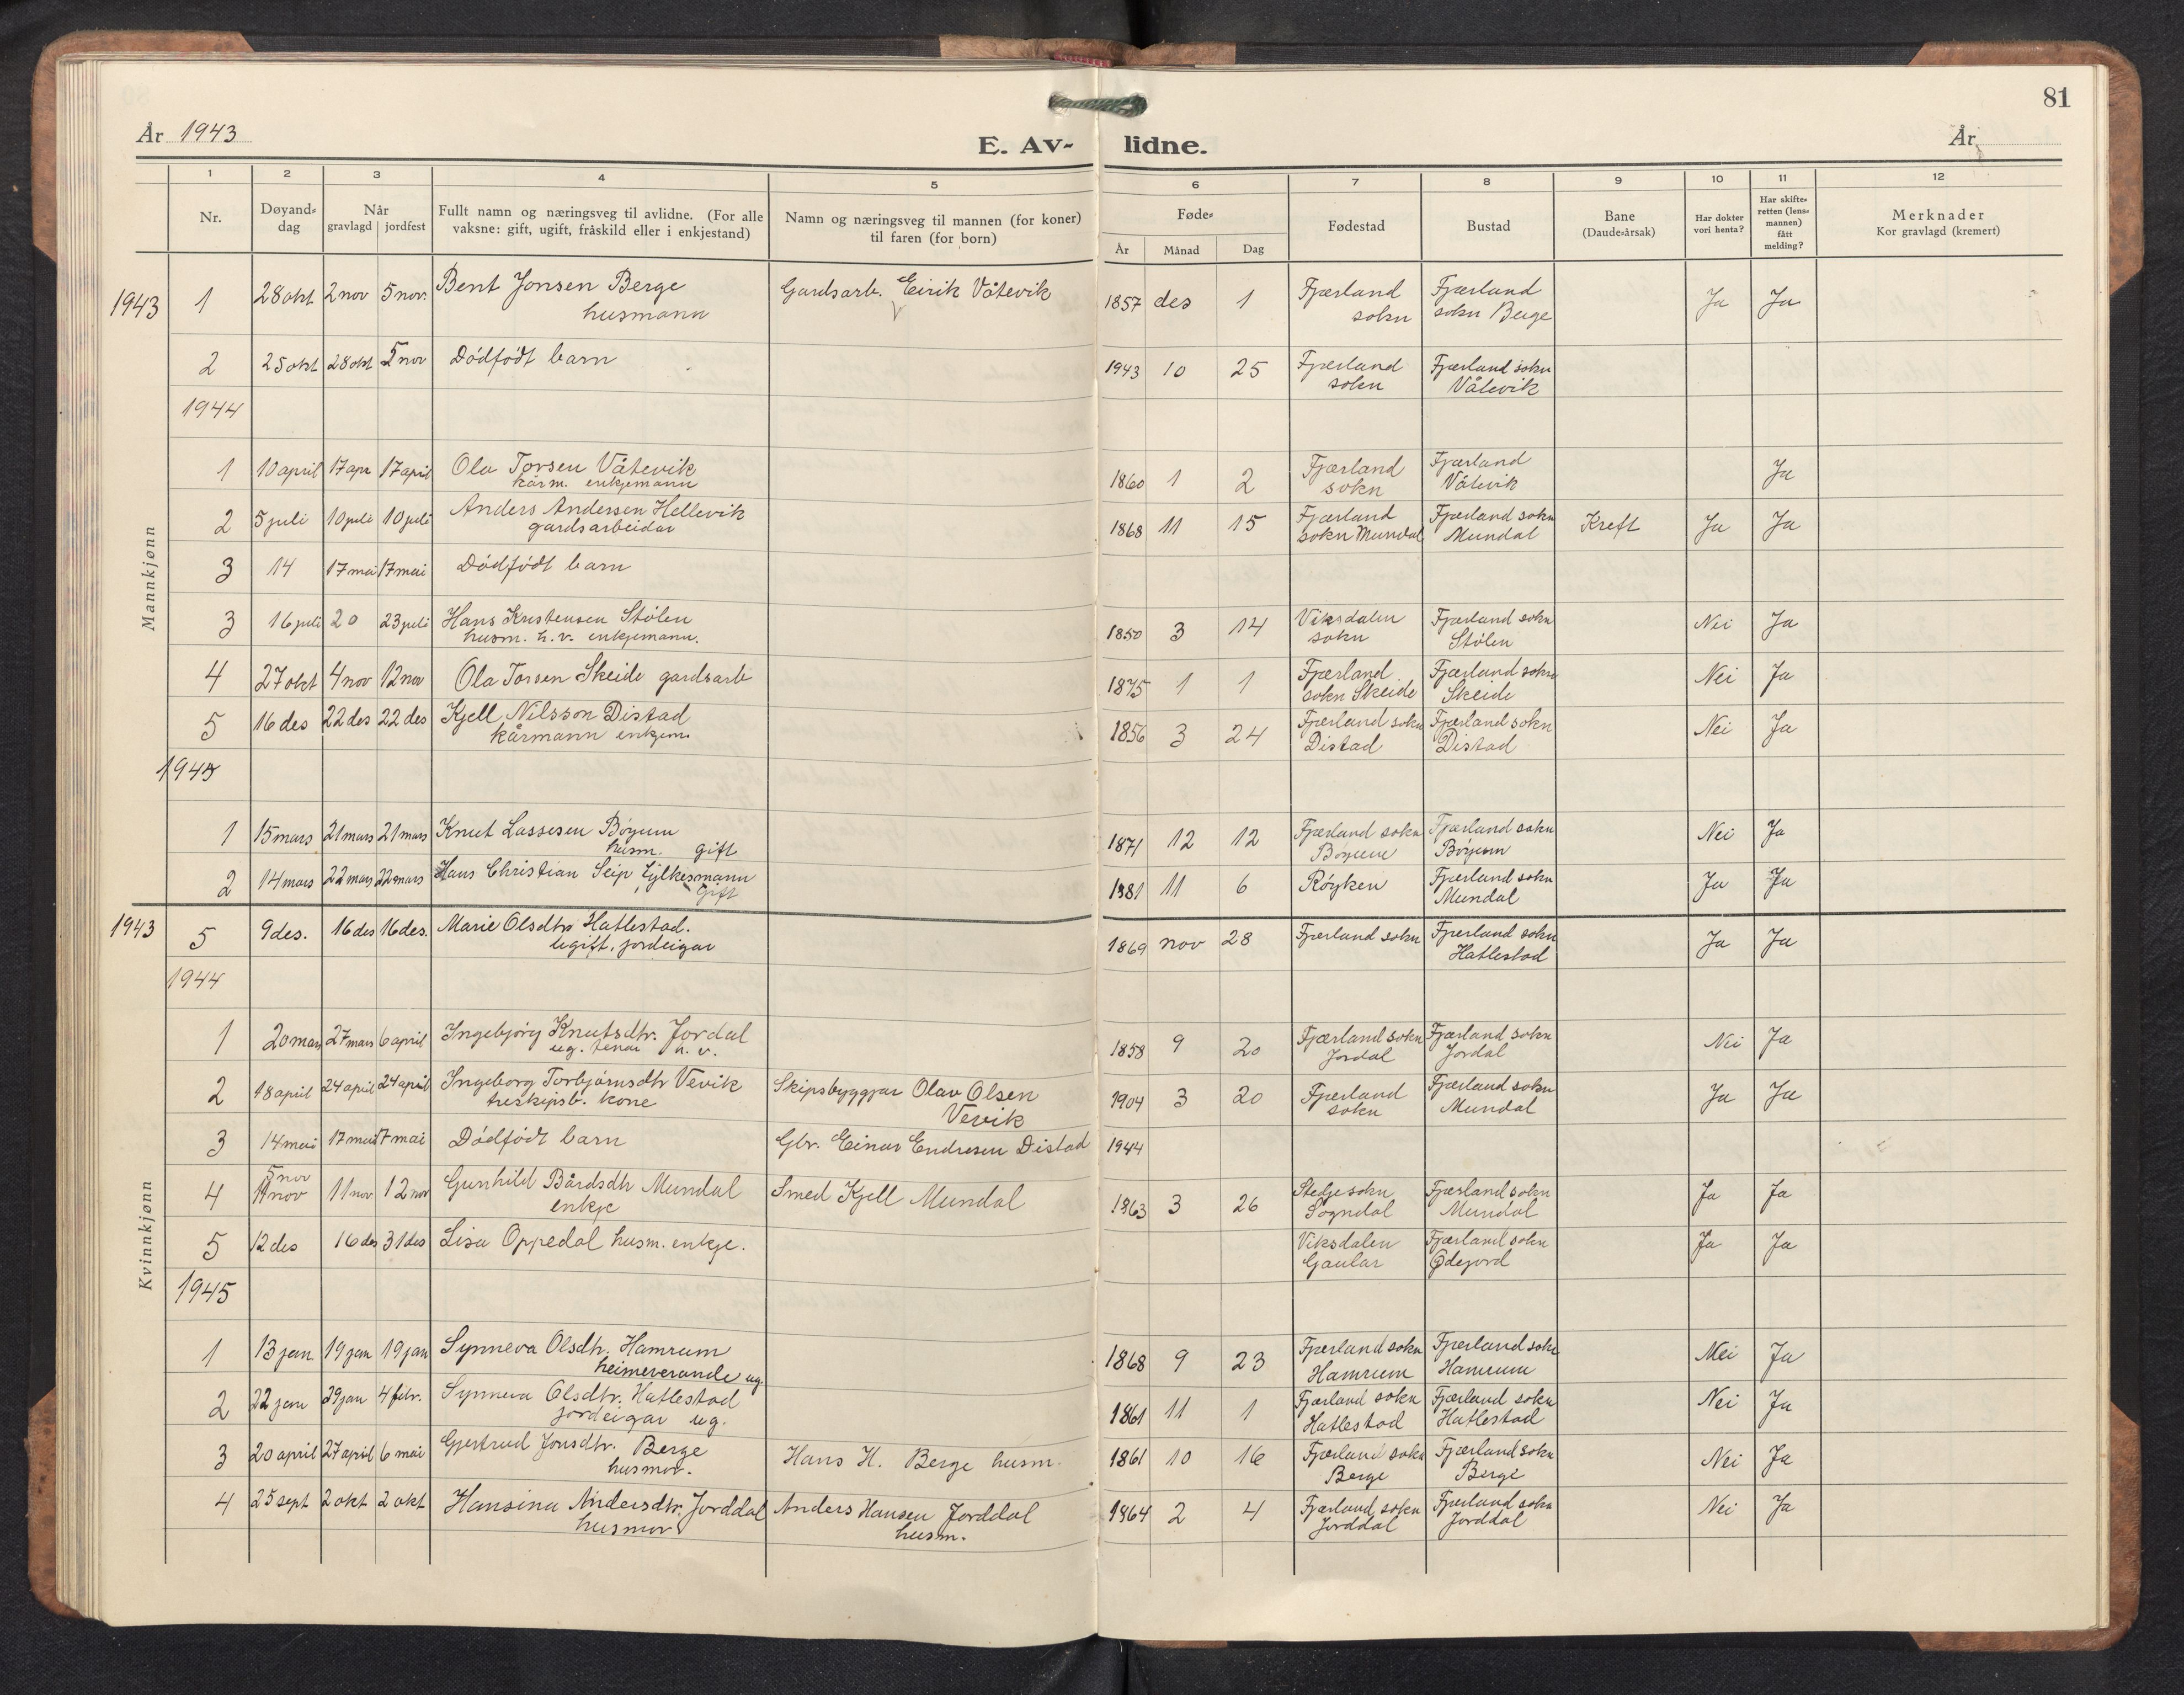 81
År 1943
E. Av- lidne.
År
1 2 3 4 5 6 7 8 9 10 11 12
Nr. Døyand-dag Når gravlagd jordfest Fullt namn og næringsveg til avlidne. (For alle vaksne: gift, ugift, fråskild eller i enkjestand) Namn og næringsveg til mannen (for koner) til faren (for born) Føde- År Månad Dag Fødestad Bustad Bane (Daude-årsak) Har dokter vori henta? Har skifte-retten (lens-mannen) fått melding? Merknader Kor gravlagd (kremert)
Mannkjønn
1943 1 28 okt 2 nov 5 nov. Bent Jonsen Berge husmann Gardsarb. Eirik Våtevik 1857 des 1 Fjærland sokn Fjærland sokn Berge Ja Ja
2 25 okt 28 okt 5 nov Dödfödt barn 1943 10 25 Fjærland sokn Fjærland sokn Våtevik
1944
1 10 april 17 apr 17 april Ola Torsen Våtevik kårm. enkjemann 1860 1 2 Fjærland sokn Fjærland Våtevik Ja
2 5 juli 10 juli 10 juli Anders Andersen Hellevik gardsarbeidar 1868 11 15 Fjærland sokn Mundal Fjærland sokn Mundal Kreft Ja Ja
3 14 17 mai 17 mai Dödfödt barn
3 16 juli 20 23 juli Hans Kristensen Stölen husm. h.v. enkjemann. 1850 3 14 Viksdalen sokn Fjærland sokn Stölen Nei Ja
4 27 okt 4 nov 12 nov Ola Torsen Skeide gardsarb 1875 1 1 Fjærland sokn Skeide Fjærland sokn Skeide Nei Ja
5 16 des 22 des 22 des Kjell Nilsson Distad kårmann enkjem. 1856 3 24 Fjærland sokn Distad Fjærland sokn Distad Nei Ja
1945
1 15 mars 21 mars 21 mars Knut Lassesen Böyum husm. gift 1871 12 12 Fjærland sokn Böyum Fjærland sokn Böyum Nei Ja
2 14 mars 22 mars 22 mars Hans Christian Seip fylkesmann Gift 1881 11 6 Röyken Fjærland sokn Mundal Ja Ja
Kvinnkjønn
1943 5 9 des. 16 des 16 des. Marie Olsdtr Hatlestad. ugift, jordeigar 1869 nov 28 Fjærland sokn Fjærland sokn Hatlestad Ja Ja
1944
1 20 mars 27 mars 6 april Ingebjörg Knutsdtr. Jordal ug. tenar h. v. 1858 9 20 Fjærland sokn Jordal Fjærland sokn Jordal Nei Ja
2 18 april 24 april 24 april Ingeborg Torbjörnsdtr Vevik treskipsb. kone Skipsbyggjar Olav Olsen Vevik 1904 3 20 Fjærland sokn Fjærland sokn Mundal Ja Ja
3 14 mai 17 mai 17 mai Dödfödt barn Gbr. Einar Endresen Distad 1944
4 5 nov 11 nov 11 nov 12 nov Gunhild Bårdsdtr Mundal enkje Smed Kjell Mundal 1863 3 26 Stedje sokn Sogndal Fjærland sokn Mundal Ja Ja
5 12 des 16 des 31 des Lisa Oppedal husm. enkje. Viksdalen Gaular Fjærland sokn Ødejord Ja Ja
1945
1 13 jan. 19 jan 19 jan Synneva Olsdtr. Hamrum heimeverande ug. 1868 9 23 Fjærland sokn Hamrum Fjærland sokn Hamrum Nei Ja
2 22 jan 29 jan 4 febr. Synneva Olsdtr. Hatlestad jordeigar ug. 1861 11 1 Fjærland sokn Hatlestad Fjærland sokn Hatlestad Nei Ja
3 20 april 27 april 6 mai Gjertrud Jonsdtr. Berge husmor. Hans H. Berge husm. 1861 10 16 Fjærland sokn Berge Fjærland sokn Berge Nei Ja
4 25 sept 2 okt 2 okt Hansina Andersdtr. Jorddal husmor Anders Hansen Jorddal husm. 1864 2 4 Fjærland sokn Jorddal Fjærland sokn Jorddal Nei Ja